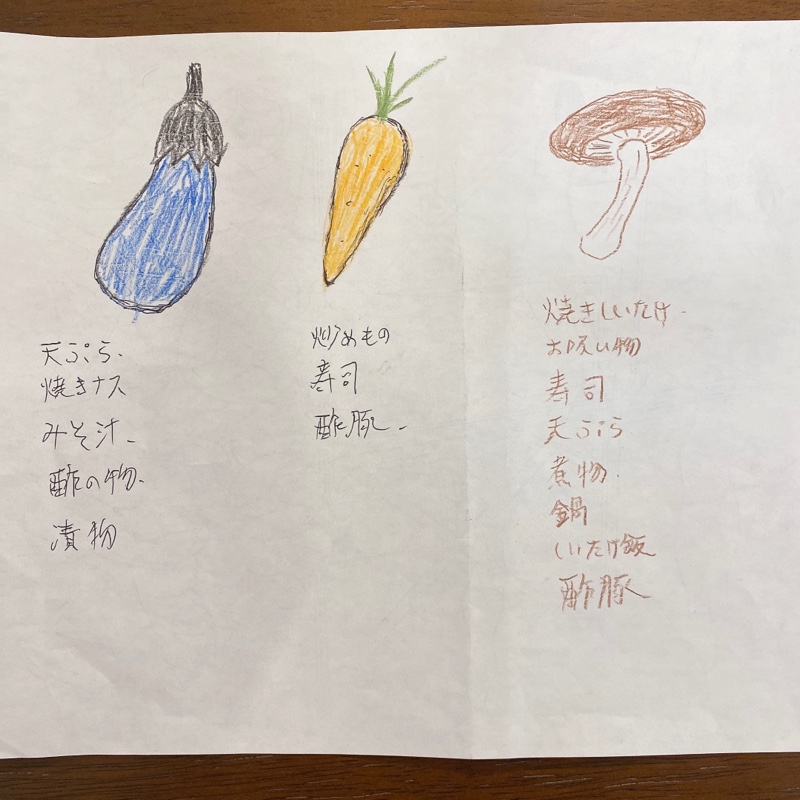 天ぷら、
焼きナス
みそ汁、
酢の物、
漬物
炒めもの
寿司
酢豚、
焼きしいたけ、
お吸い物
寿司
天ぷら
煮物、
鍋
しいたけ飯
酢豚